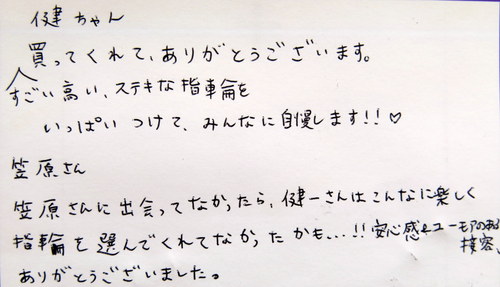 健ちゃん
買ってくれて、ありがとうございます。
すごい高い、ステキな指輪を
いっぱいつけて、みんなに自慢します!!♡
笠原さん
笠原さんに出会ってなかったら、健一さんはこんなに楽しく
指輪を選んでくれてなかったかも…!!安心感&ユーモアのある
接客、
ありがとうございました。